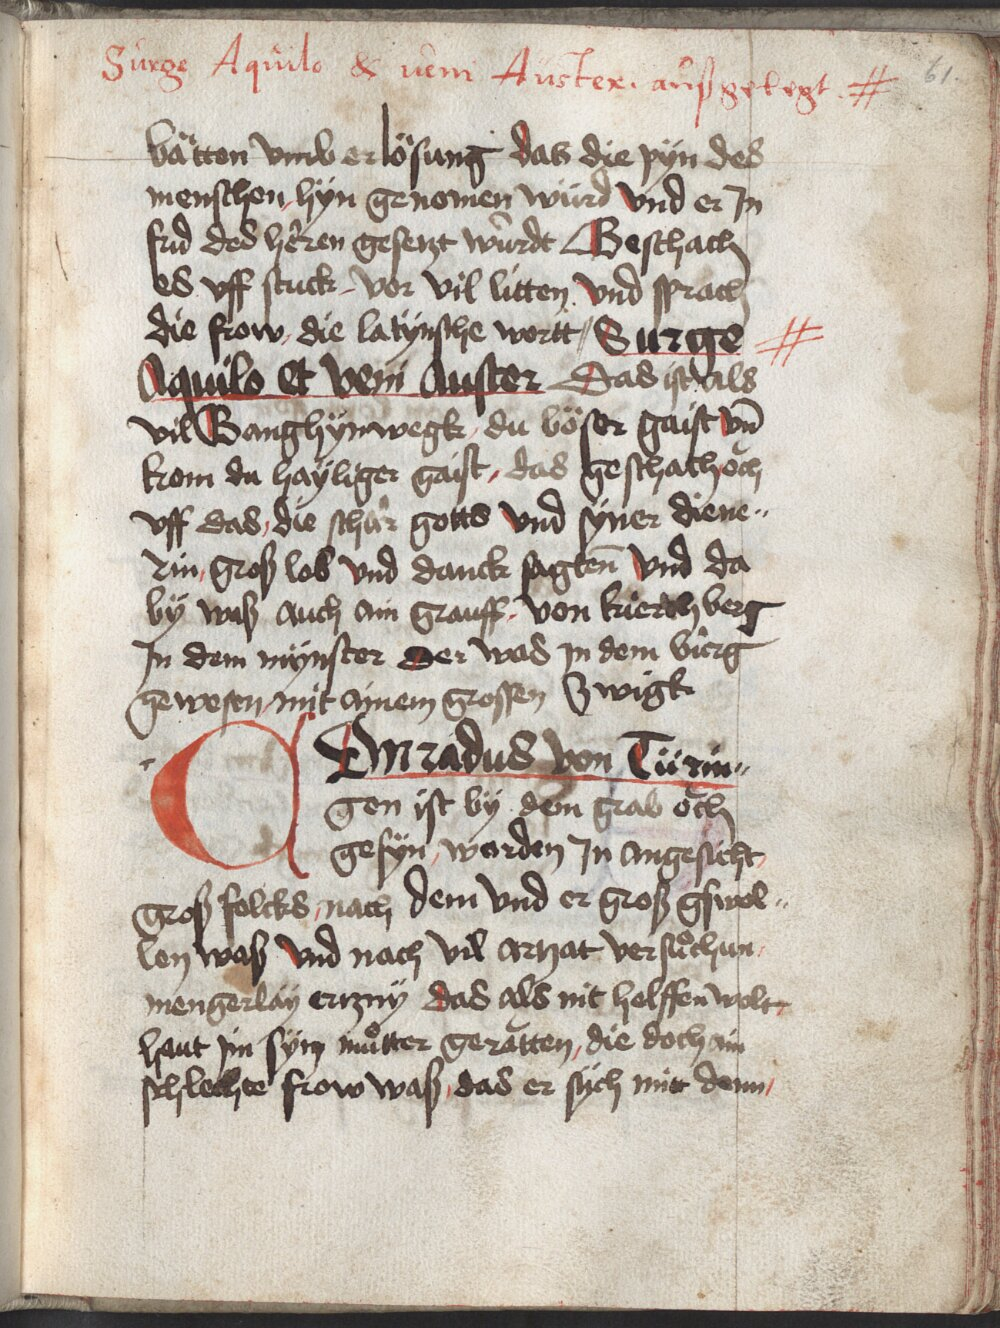 Surge Aquilo & veni Auster. außgelegt. #
61.
bätten vmb erlösung das die pyn des
menschen hyn genomen würd vnd er In
frid des heren gesetzt würdt Beschach
es vff stuck vor vil litten vnd sprach
die frow die latynsche wortt Surge #
Aquilo et veni Auster Das ist als
vil Gang hynwegk du böser gaist vn̄
kom du hayliger gaist das geschach och
vff das die schar gotts vnd syner diene-
rin groß lob vnd danck sagten vnd da
by waß auch ain grauff von kierchberg
In dem mynster der was in dem bürg
gewesen mit ainem grossen Zwigk
Conradus von Türin-
gen ist by dem grab och
gesyn worden In angesicht
groß folcks nach dem vnd er groß gswol-
len waß vnd nach vil artzat versüchun
mengerlay ertzny das als nit helffen wolt
haut im syn mütter geratten die doch ain
schlechte frow waß das er sych mit demu